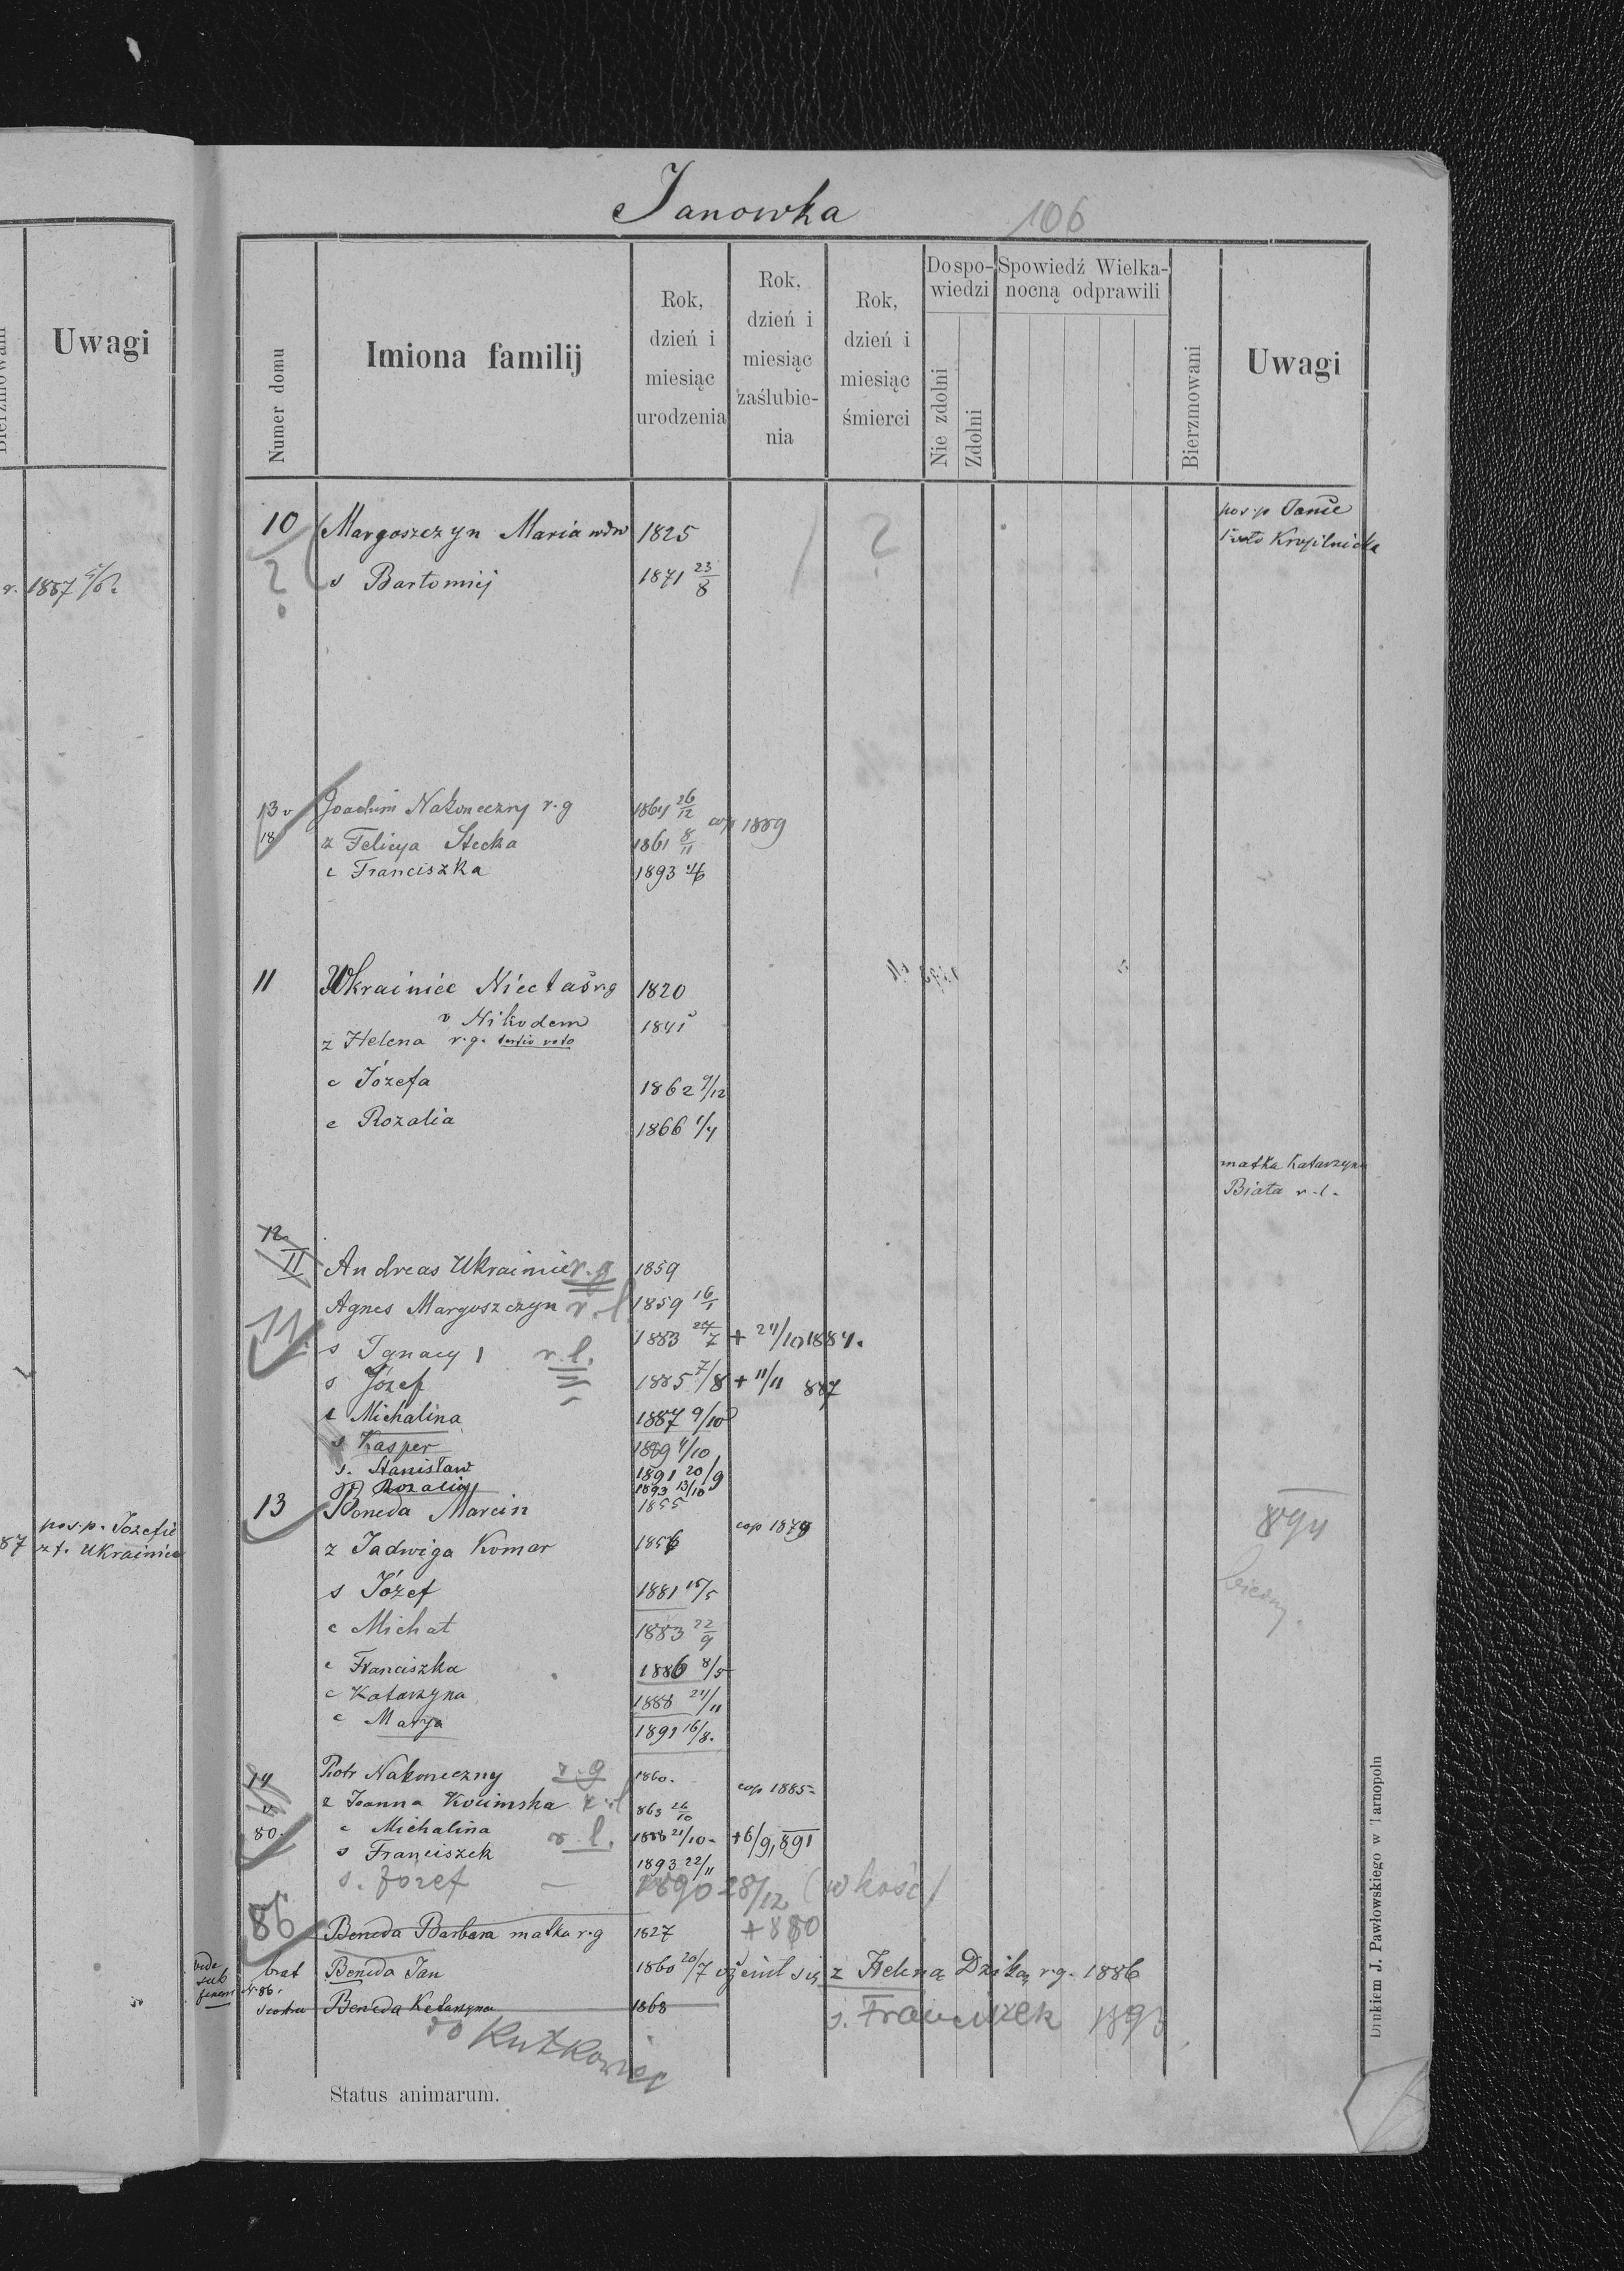 Janowka 106
Uwagi
Numer domu
Imiona familij
Rok, dzień i miesiąc urodzenia
Rok, dzień i miesiąc zaślubienia
Rok, dzień i miesiąc śmierci
Do spowiedzi
Nie zdolni
Zdolni
Spowiedź Wielkanocną odprawili
Bierzmowani
Uwagi
10 Margoszczyn Maria wdw 1825 ? pos.p Janie
? s Bartomiej 1871 23/8
1887
13 v Joachim Nakoneczny r.g 1864 26/12 cop 1889
18 z Felicya Stecka 1861 8/11
c Franciszka 1893
11 Ukrainiec Nictaś r.g 1820
v Nikodem
z Helena r.g. tertio voto 1841
c Józefa 1862 9/12
c Rozalia 1866 1/4
matka Katarzyna
Biała r.l.
12
II Andreas Ukrainiec r.g 1859
Agnes Margoszczyn r.l 1859 16/1
11. s Ignacy r.l. 1883 24/7 + 24/10 1884.
s Józef 1885 7/8 + 11/11 887
c Michalina 1887 9/10
s Kasper 1889 4/10
s. Stanisław 1891 20/9
Rozalia 1893 13/10
13 Beneda Marcin 1855 cop 1879
z Jadwiga Komar 1856
s Józef 1881 15/5
c Michał 1883 22/9
c Franciszka 1886 8/5
c Katarzyna 1888 24/11
c Marya 1891 16/8.
894
87 pos.p. Jozefie
z f. Ukrainiec
14 Piotr Nakoneczny r.g 1860. cop 1885
v z Joanna Kocimska r.l 863 26/10
80. c Michalina 1886 21/10 +6/9, 891
s Franciszek r.l. 1893 22/11
s. Józef – 1890 28/12 (w kośc)
86 Beneda Barbara matka r.g 1827 + 880
vide sub finem
brat Beneda Jan 1860 20/7 ożenił się z Heleną Dziką r.g. 1886
N. 86.
siostra Beneda Katarzyna 1868 s. Franciszek 1893
do Kutkowiec
Status animarum.
Drukiem J. Pawłowskiego w Tarnopolu